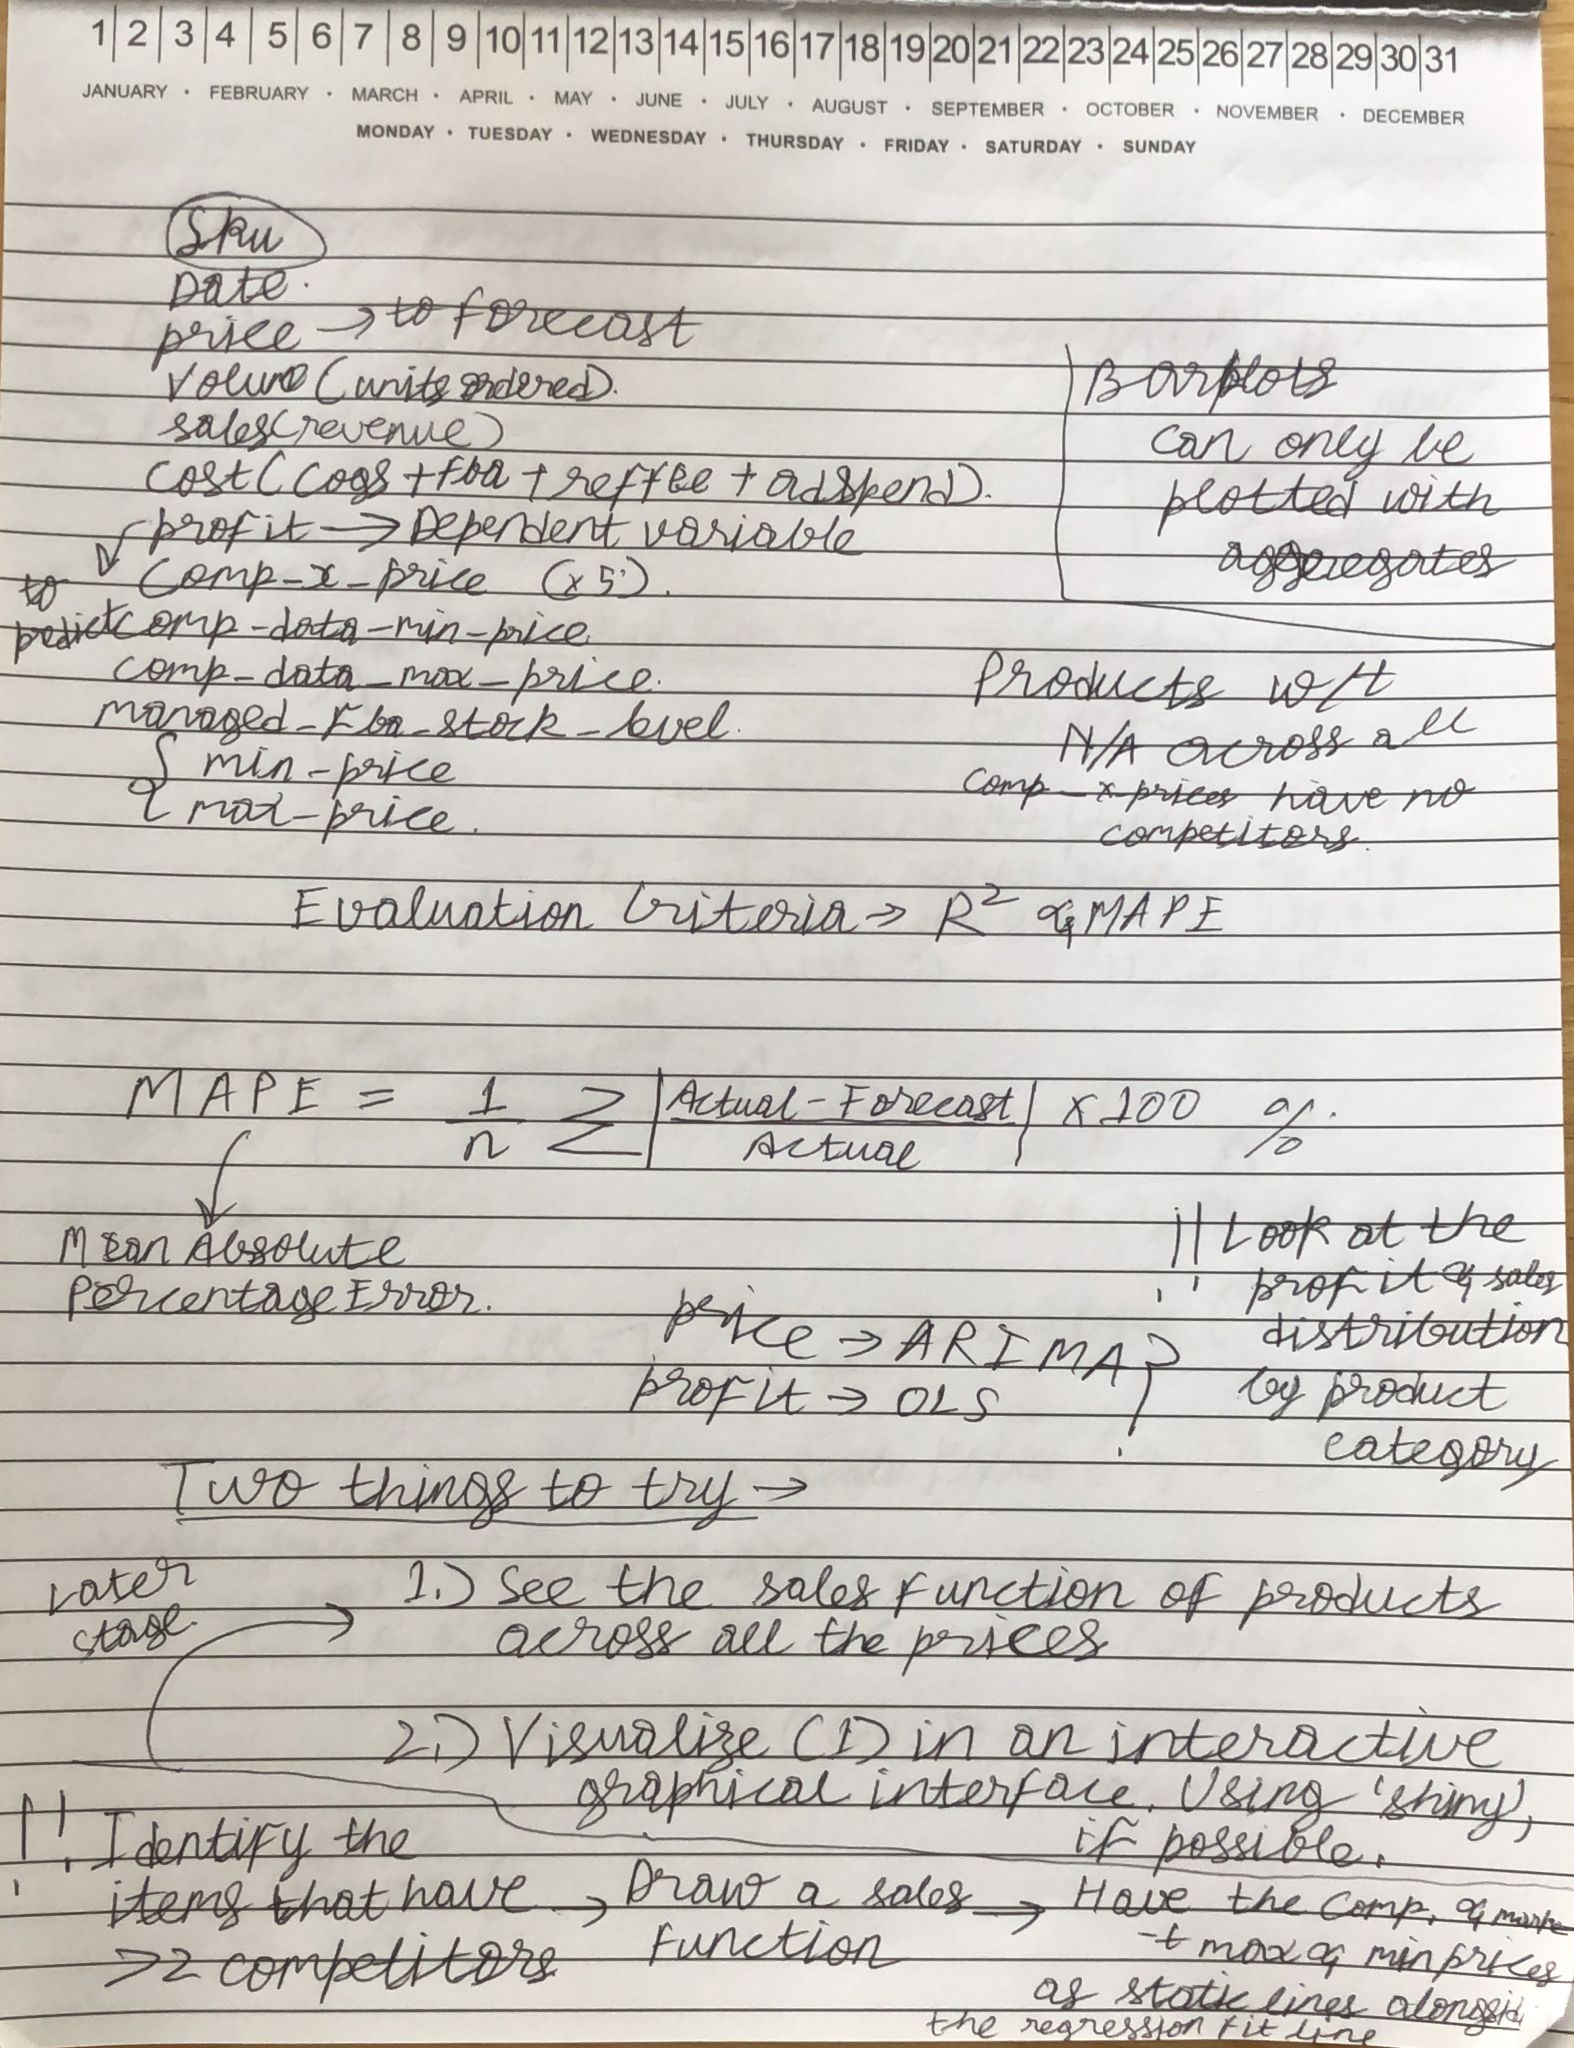 1 2 3 4 5 6 7 8 9 10 11 12 13 14 15 16 17 18 19 20 21 22 23 24 25 26 27 28 29 30 31
JANUARY · FEBRUARY · MARCH · APRIL · MAY · JUNE · JULY · AUGUST · SEPTEMBER · OCTOBER · NOVEMBER · DECEMBER
MONDAY · TUESDAY · WEDNESDAY · THURSDAY · FRIDAY · SATURDAY · SUNDAY
Sku
Date.
price → to forecast
Volume (units ordered).
sales(revenue)
cost (cogs + fba + reffee + adspend).
profit → Dependent variable
to pedict
comp-x-price (x5).
comp-data-min-price.
comp-data-max-price.
managed-Fba-stock-level.
{ min-price
max-price.
Barplots
can only be
plotted with
aggregates
Products w/t
N/A across all
comp-x-prices have no
competitors.
Evaluation Criteria → R² & MAPE
MAPE = 1/n Σ |Actual-Forecast / Actual| x 100 %.
Mean Absolute
Percentage Error.
!! Look at the
profit & sales
distribution
by product
category
price → ARIMA ?
profit → OLS
Two things to try →
Later
stage
1.) See the sales function of products
across all the prices
2.) Visualize (1) in an interactive
graphical interface. Using 'shiny',
if possible.
!! Identify the
items that have
>2 competitors
→ Draw a sales
function
→ Have the comp. & marke
-t max & min prices
as static lines alongsid
the regression fit line